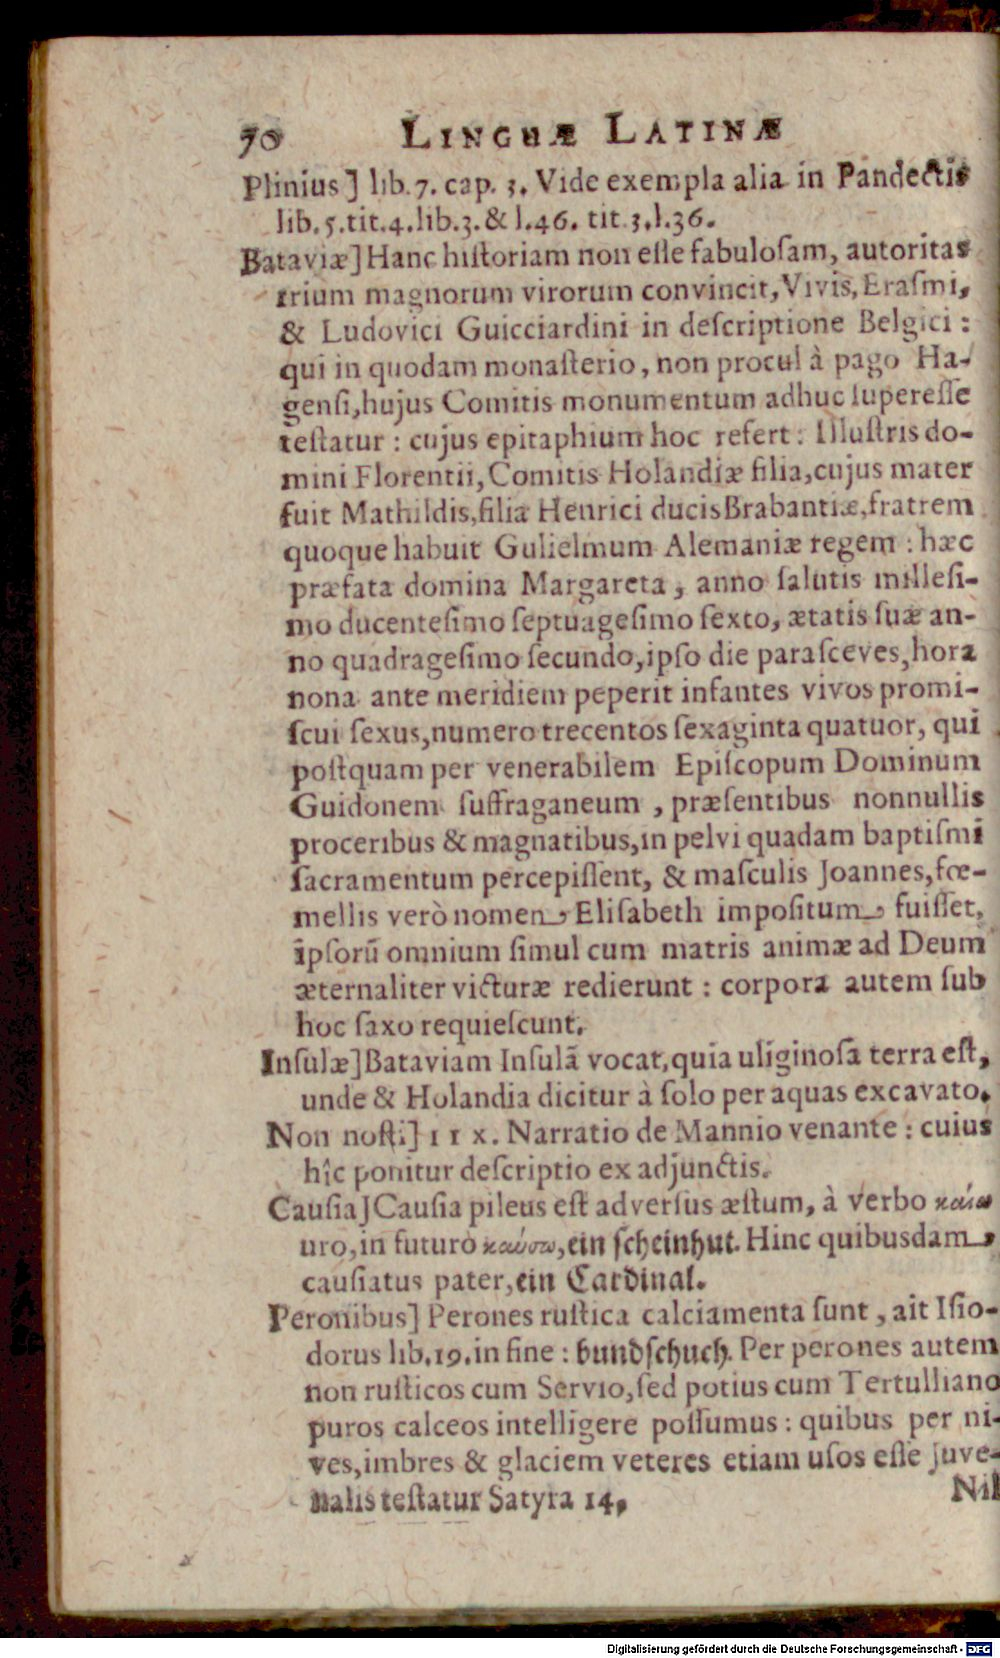 70 LINGUÆ LATINÆ
Plinius] lib. 7. cap. 3. Vide exempla alia in Pandectis
lib. 5. tit. 4. lib. 3. & l. 46. tit. 3. l. 36.
Bataviæ] Hanc hiſtoriam non eſſe fabuloſam, autoritas
trium magnorum virorum convincit, Vivis, Eraſmi,
& Ludovici Guicciardini in deſcriptione Belgici :
qui in quodam monaſterio, non procul à pago Ha-
genſi, hujus Comitis monumentum adhuc ſupereſſe
teſtatur : cujus epitaphium hoc refert : Illuſtris do-
mini Florentii, Comitis Holandiæ filia, cujus mater
fuit Mathildis, filia Henrici ducis Brabantiæ, fratrem
quoque habuit Gulielmum Alemaniæ regem : hæc
præfata domina Margareta, anno ſalutis milleſi-
mo ducenteſimo ſeptuageſimo ſexto, ætatis ſuæ an-
no quadrageſimo ſecundo, ipſo die paraſceves, hora
nona ante meridiem peperit infantes vivos promi-
ſcui ſexus, numero trecentos ſexaginta quatuor, qui
poſtquam per venerabilem Epiſcopum Dominum
Guidonem ſuffraganeum, præſentibus nonnullis
proceribus & magnatibus, in pelvi quadam baptiſmi
ſacramentum percepiſſent, & maſculis Joannes, fœ-
mellis verò nomen Eliſabeth impoſitum fuiſſet,
ipſorũ omnium ſimul cum matris animæ ad Deum
æternaliter victuræ redierunt : corpora autem ſub
hoc ſaxo requieſcunt.
Inſulæ] Bataviam Inſulã vocat, quia uliginoſa terra eſt,
unde & Holandia dicitur à ſolo per aquas excavato.
Non noſti] 11 x. Narratio de Mannio venante : cuius
hîc ponitur deſcriptio ex adjunctis.
Cauſia] Cauſia pileus eſt adverſus æſtum, à verbo καύω
uro, in futuro καύσω, ein ſcheinhut. Hinc quibusdam
cauſiatus pater, ein Cardinal.
Peronibus] Perones ruſtica calciamenta ſunt, ait Iſio-
dorus lib. 19. in fine : bundſchuch. Per perones autem
non ruſticos cum Servio, ſed potius cum Tertulliano
puros calceos intelligere poſſumus : quibus per ni-
ves, imbres & glaciem veteres etiam uſos eſſe Juve-
nalis teſtatur Satyra 14,
Nil
Digitalisierung gefördert durch die Deutsche Forschungsgemeinschaft - DFG